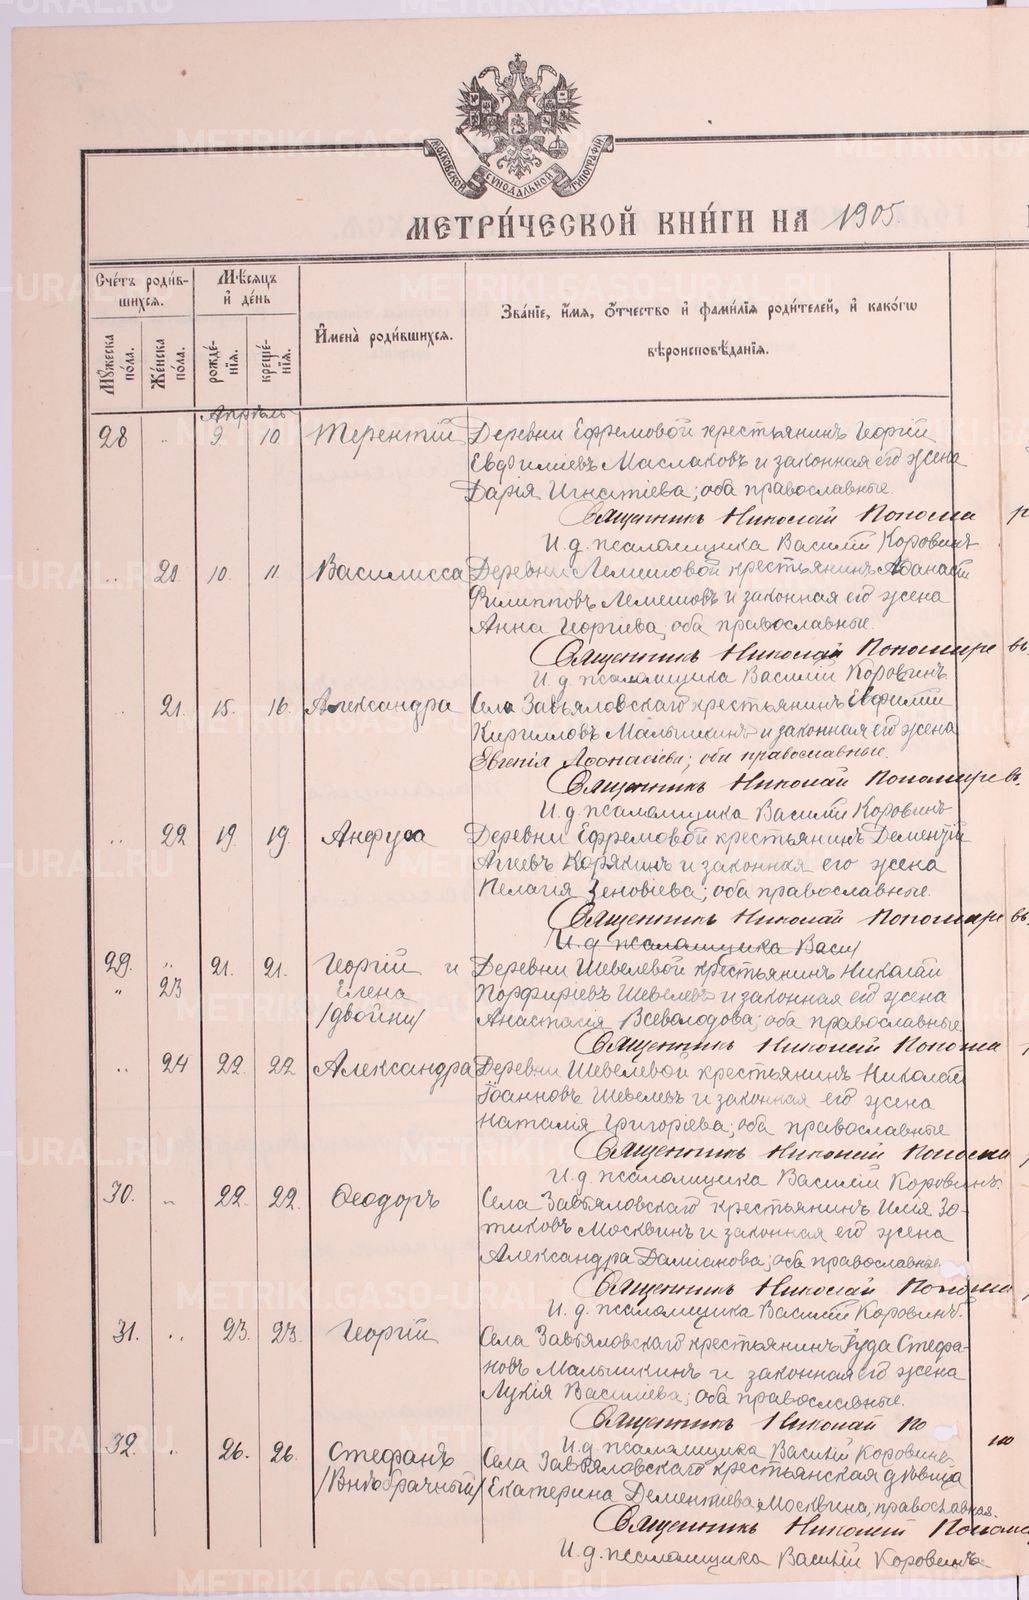 МОСКОВСКОЙ СУНОДАЛЬНОЙ ТИПОГРАФІИ
МЕТРИ́ЧЕСКОЙ КНИ́ГИ НА 1905.
Сче́тъ роди́вшихся.
Мѣсяцъ и де́нь
Мꙋжеска по́ла.
Же́нска по́ла.
рожде́нїѧ.
креще́нїѧ.
Имена̀ роди́вшихсѧ.
Зва́нїе, и́мѧ, ѻ́тчество и҆ фами́лїѧ роди́телей, и҆ како́гѡ
вѣроисповѣ́данїѧ.
Апрѣль
28 „ 9 10 Терентій Деревни Ефремовой крестьянинъ Георгій
Евфиміевъ Маслаковъ и законная его жена
Дарія Игнатіева; оба православные.
Священникъ Николай Понома
И. д. псаломщика Василій Коровинъ
„ 20 10. 11. Василисса Деревни Лемешовой крестьянинъ Аѳанасій
Филипповъ Лемешовъ и законная его жена
Анна Георгіева, оба православные.
Священникъ Николай Пономаревъ.
И. д. псаломщика Василій Коровинъ
„ 21. 15. 16. Александра Села Завьяловскаго крестьянинъ Евфимій
Кирилловъ Малышкинъ и законная его жена
Евгенія Аѳонасіева; оба православные.
Священникъ Николай Пономаревъ.
И. д. псаломщика Василій Коровинъ
„ 22 19. 19. Анфуса Деревни Ефремовой крестьянинъ Дементій
Агеевъ Корякинъ и законная его жена
Пелагія Зеновіева; оба православные.
Священникъ Николай Пономаревъ.
И. д. псаломщика Васил
29. „ 21. 21. Георгій и Деревни Шевелевой крестьянинъ Николай
„ 23 Елена Порфиріевъ Шевелевъ и законная его жена
/двойни/ Анастасія Всеволодова; оба православные
Священникъ Николай Понома
„ 24 22. 22 Александра Деревни Шевелевой крестьянинъ Николай
Іоанновъ Шевелевъ и законная его жена
Наталія Григоріева; оба православные
Священникъ Николай Понома
И. д. псаломщика Василій Коровинъ.
30. „ 22. 22. Ѳеодоръ Села Завьяловскаго крестьянинъ Илія Зо-
тиковъ Москвинъ и законная его жена
Александра Даміанова; оба православные
Священникъ Николай Понома
И. д. псаломщика Василій Коровинъ.
31. „ 23. 23. Георгій Села Завьяловскаго крестьянинъ Іуда Стефа-
новъ Малышкинъ и законная его жена
Лукія Василіева; оба православные.
Священникъ Николай По
И. д. псаломщика Василій Коровинъ
32. „ 26. 26. Стефанъ Села Завьяловскаго крестьянская дѣвица
/Внѣбрачный/ Екатерина Дементіева Москвина, православная.
Священникъ Николай Понома
И. д. псаломщика Василій Коровинъ
METRIKI.GASO-URAL.RU